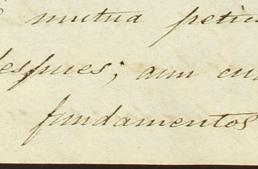 mutua peti
despues; aun cu
fundamentos